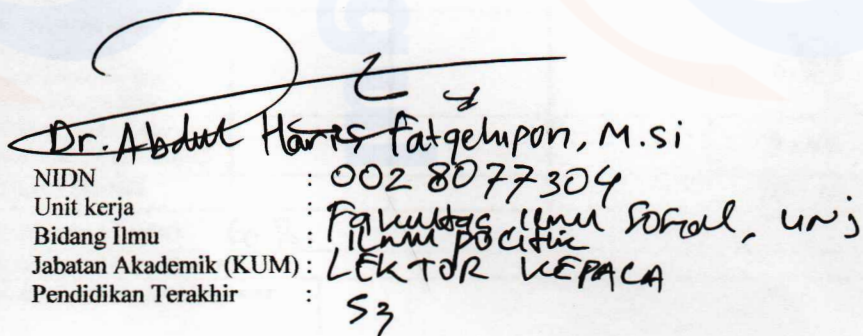 Dr. Abdul Haris Fatgehipon, M.si
NIDN : 0028077304
Unit kerja : Fakultas Ilmu Sosial, UNJ
Bidang Ilmu : Ilmu Politik
Jabatan Akademik (KUM) : LEKTOR KEPALA
Pendidikan Terakhir : S3